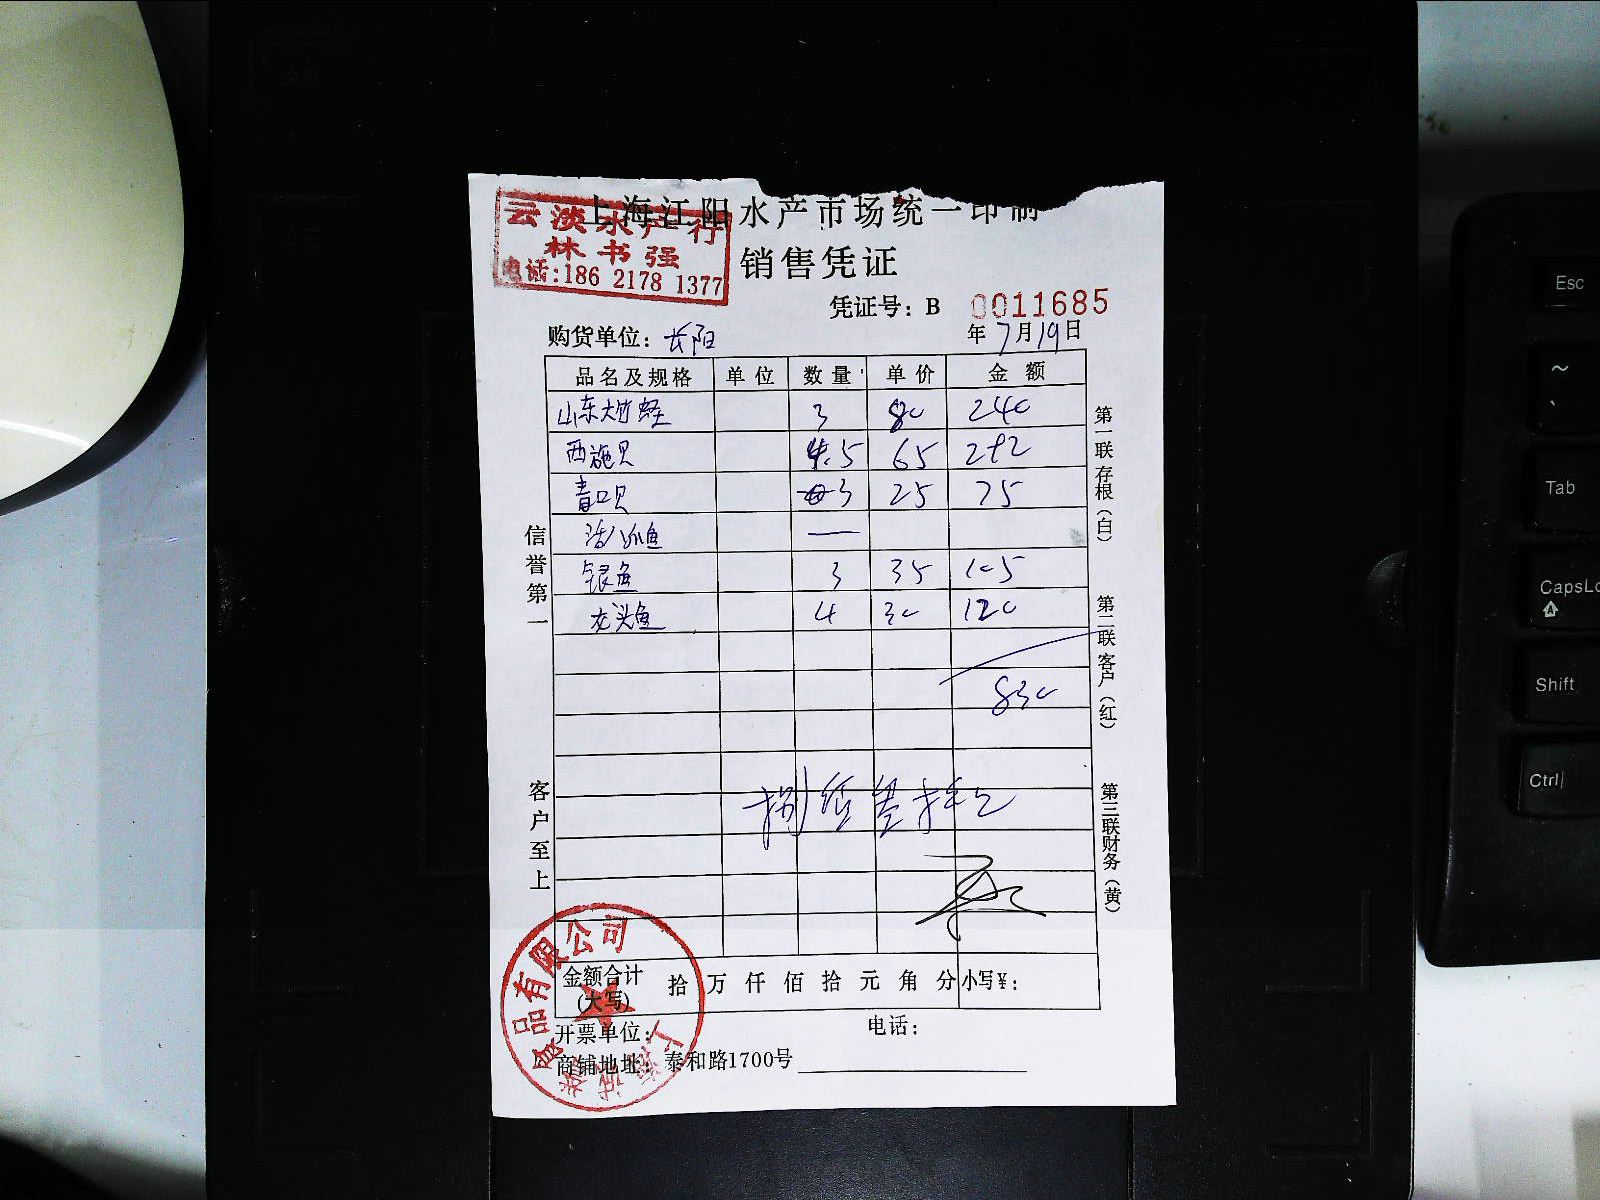 上海江阳水产市场统一印制
云淡水产行
林书强
电话:186 2178 1377
销售凭证
凭证号: B 0011685
购货单位: 长阳 年 7月19日
品名及规格 单位 数量 单价 金额
山东大竹蛏 3 80 240
西施贝 4.5 65 292
青口贝 3 25 75
鱼 —
银鱼 3 35 105
龙头鱼 4 30 120
830
捌佰叁拾元
信誉第一
客户至上
第一联存根(白)
第二联客户(红)
第三联财务(黄)
金额合计(大写) 拾 万 仟 佰 拾 元 角 分 小写¥:
开票单位: 电话:
商铺地址: 泰和路1700号
食品有限公司
Esc
~
Tab
CapsLo
Shift
Ctrl